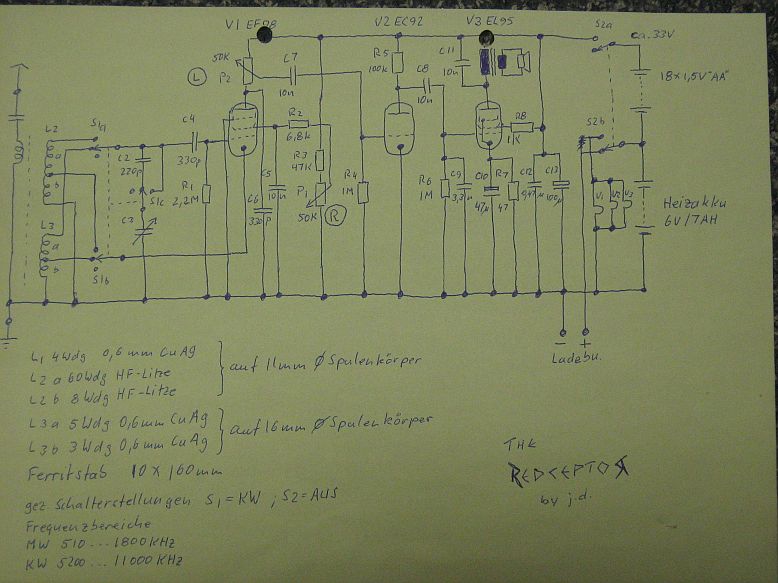 V1 EF98
V2 EC92
V3 EL95
S2a
ca. 33V
50K
P2
L
C7
10n
R5
100k
C8
10n
C11
10n
18 x 1,5V "AA"
S2b
L2
a
b
S1a
C2
220p
S1c
C3
C4
330p
R1
2,2M
R2
6,8k
R3
47K
C5
10n
C6
330p
P1
50K
R
R4
1M
R6
1M
C9
3,3n
C10
47µ
R7
47
R8
1K
C12
0,47µ
C13
100µ
V1
V2
V3
Heizakku
6V/7AH
L3
a
b
S1b
- +
Ladebu.
L1 4Wdg 0,6mm CuAg
L2 a 60Wdg HF-Litze
L2 b 8Wdg HF-Litze
auf 11mm Ø Spulenkörper
L3a 5Wdg 0,6mm CuAg
L3b 3Wdg 0,6mm CuAg
auf 16mm Ø Spulenkörper
Ferritstab 10 x 160mm
gez. Schalterstellungen S1=KW ; S2=AUS
Frequenzbereiche
MW 510...1800KHz
KW 5200...11000KHz
THE
REDCEPTOR
by j.d.